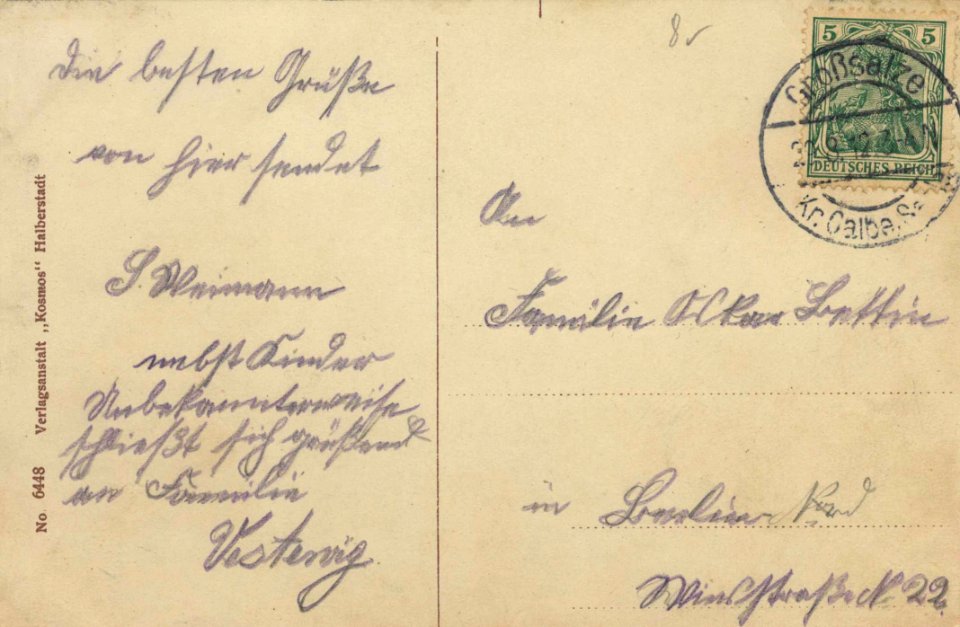 Die besten Grüße
von hier sendet
S. Weimann
nebst Kinder
Unbekannterweise
schließt sich grüßend
an Familie
Vesterwig
No. 6448 Verlagsanstalt „Kosmos" Halberstadt
8
5 5
DEUTSCHES REICH
Großsalze
Kr. Calbe,
An
Familie Oskar Bettin
in Berlin Nord
Winsstraße N. 22.